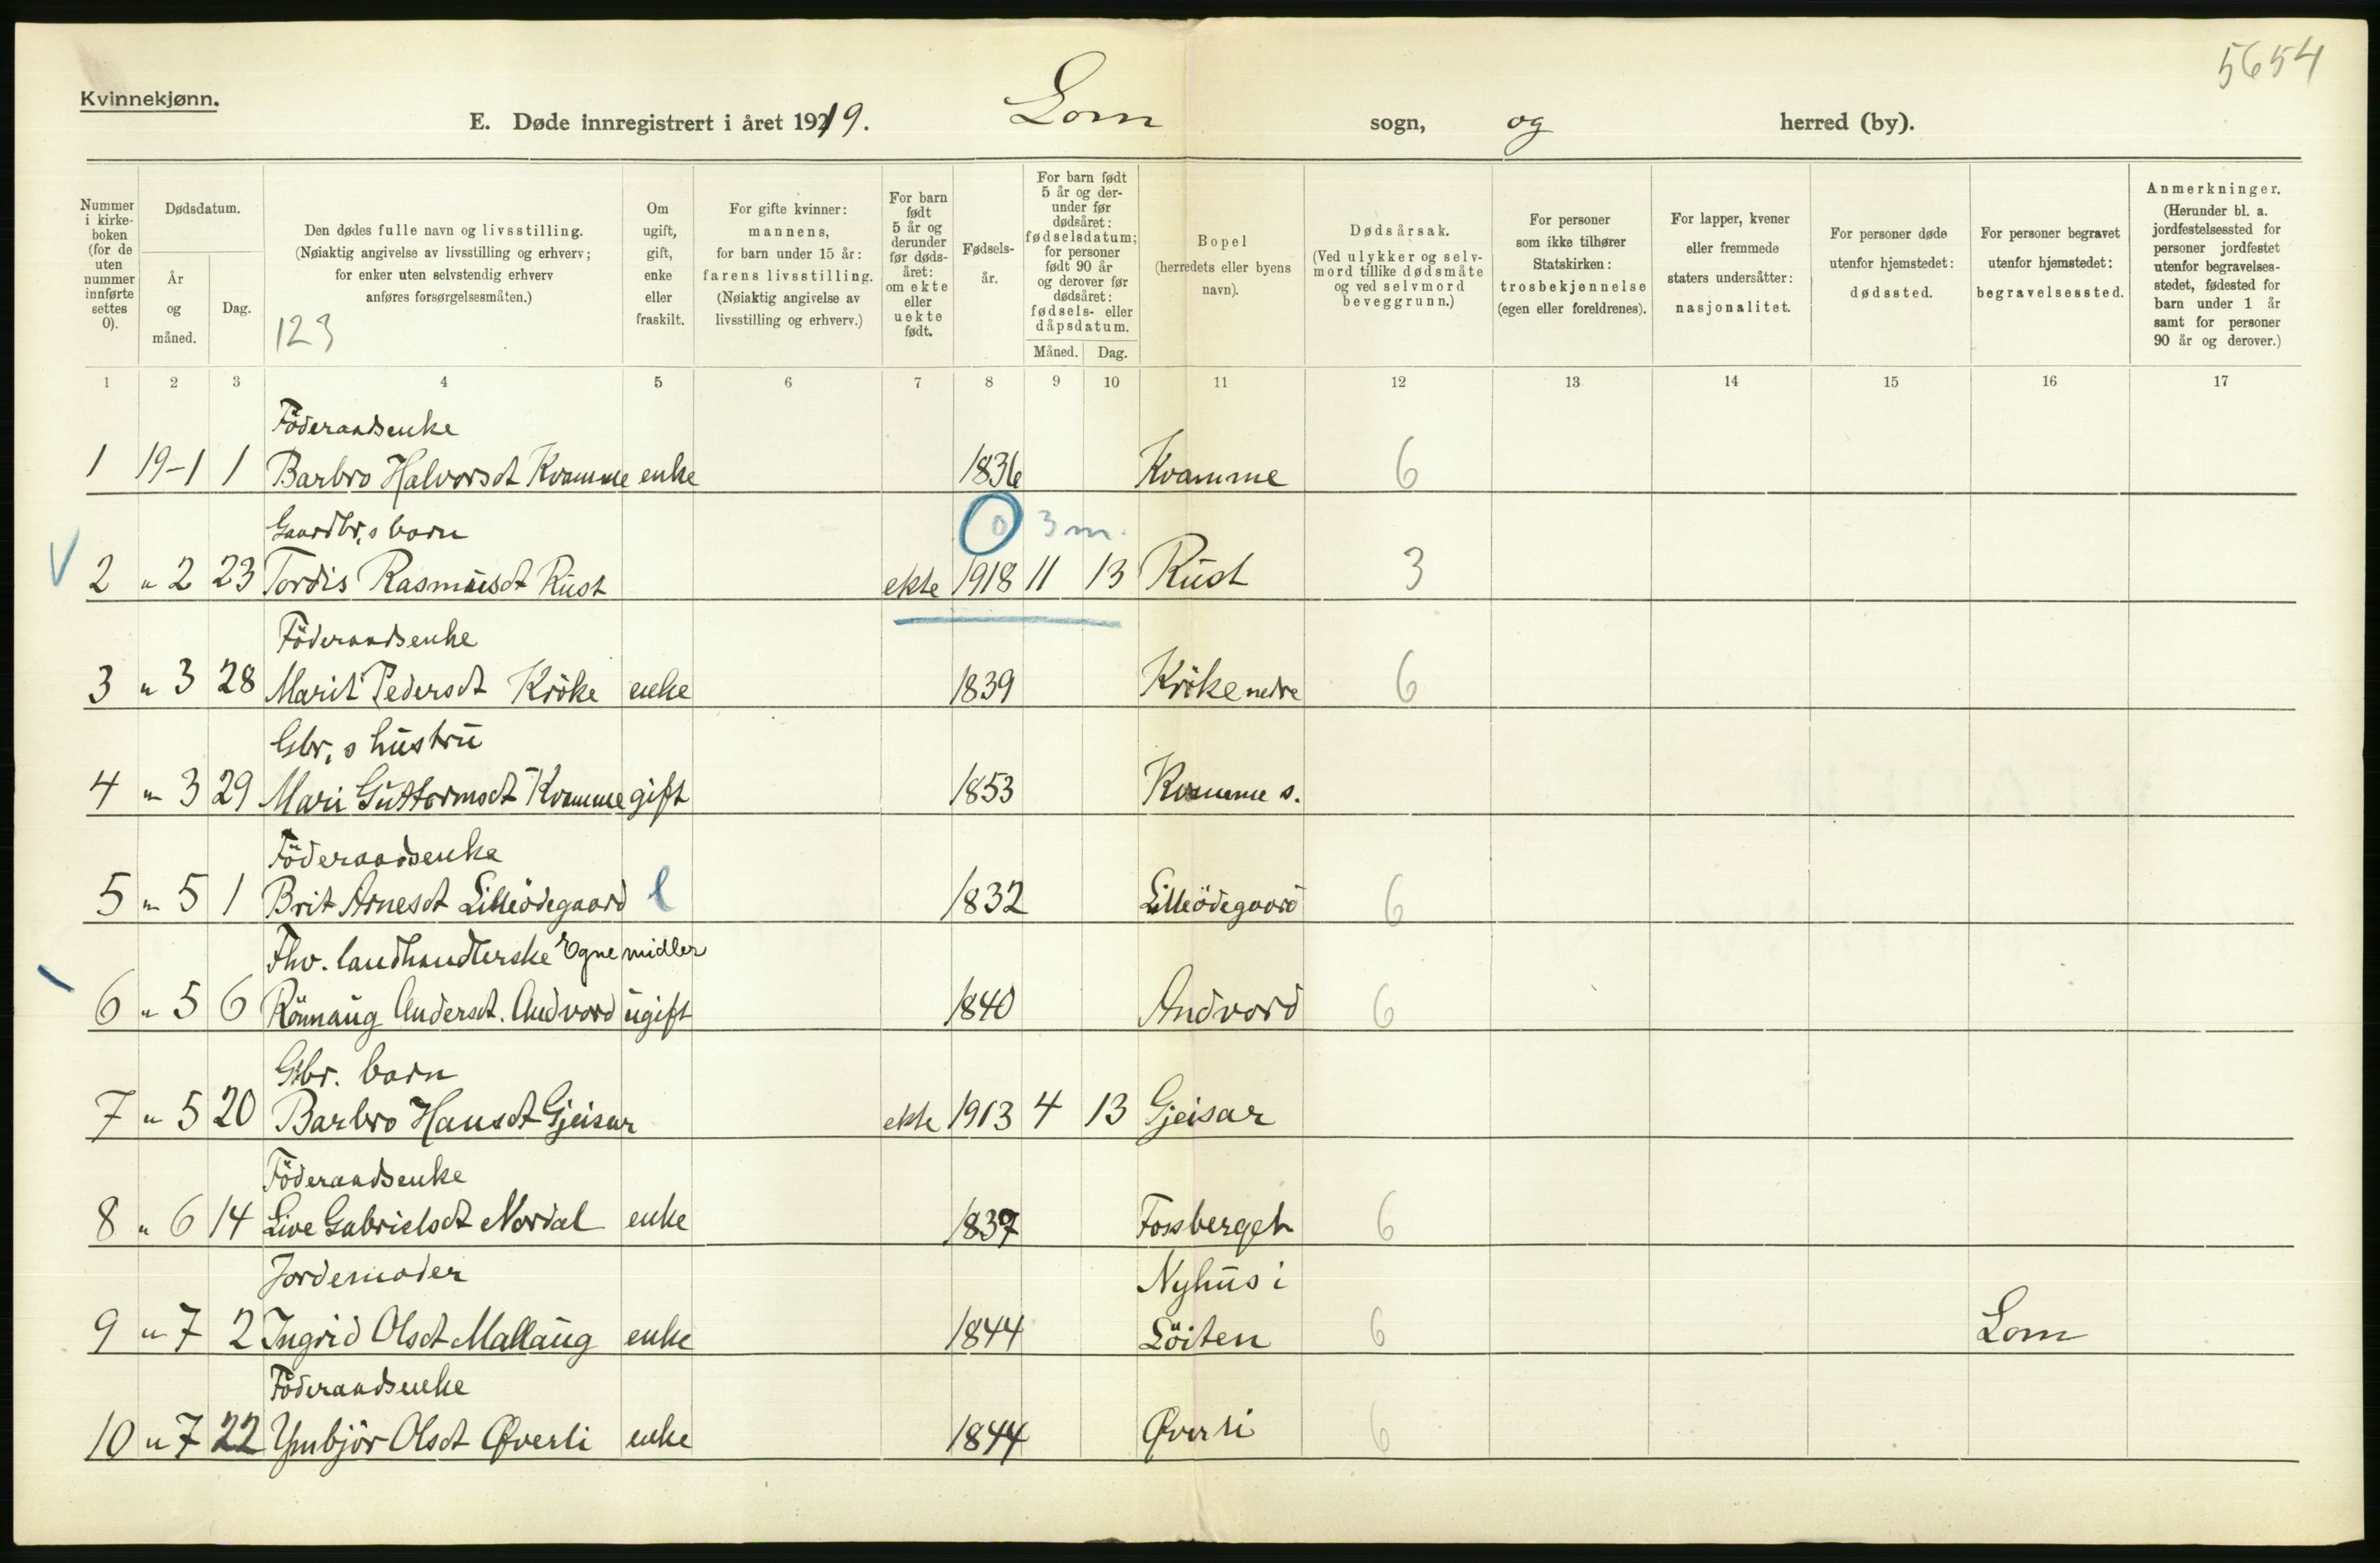 5654
Kvinnekjønn.
E. Døde innregistrert i året 1919. Lom sogn, og herred (by).
Nummer i kirkeboken (for de uten nummer innførte settes 0).
Dødsdatum.
År og måned.
Dag.
Den dødes fulle navn og livsstilling.
(Nøiaktig angivelse av livsstilling og erhverv;
for enker uten selvstendig erhverv
anføres forsørgelsesmåten.)
123
Om ugift, gift, enke eller fraskilt.
For gifte kvinner:
mannens,
for barn under 15 år:
farens livsstilling.
(Nøiaktig angivelse av
livsstilling og erhverv.)
For barn født 5 år og derunder før dødsåret: om ekte eller uekte født.
Fødselsår.
For barn født 5 år og derunder før dødsåret: fødselsdatum; for personer født 90 år og derover før dødsåret: fødsels- eller dåpsdatum.
Måned. Dag.
Bopel
(herredets eller byens
navn).
Dødsårsak.
(Ved ulykker og selvmord tillike dødsmåte og ved selvmord beveggrunn.)
For personer
som ikke tilhører
Statskirken:
trosbekjennelse
(egen eller foreldrenes).
For lapper, kvener
eller fremmede
staters undersåtter:
nasjonalitet.
For personer døde
utenfor hjemstedet:
dødssted.
For personer begravet
utenfor hjemstedet:
begravelsessted.
Anmerkninger.
(Herunder bl. a.
jordfestelsessted for
personer jordfestet
utenfor begravelsesstedet, fødested for
barn under 1 år
samt for personer
90 år og derover.)
1 2 3 4 5 6 7 8 9 10 11 12 13 14 15 16 17
Föderaadsenke
1 19-1 1 Barbro Halvorsdt Kvamme enke 1836 Kvamme 6
Gaardbr,s barn 0 3 m.
V 2 " 2 23 Tordis Rasmusdt Rust ekte 1918 11 13 Rust 3
Föderaadsenke
3 " 3 28 Marit Pedersdt Kröke enke 1839 Kröke nedre 6
Gbr,s hustru
4 " 3 29 Mari Guttormsdt Kvamme gift 1853 Kvamme s.
Föderaadsenke
5 " 5 1 Brit Arnesdt Lilleödegaard e 1832 Lilleödegaard 6
Fhv. landhandlerske Egne midler
6 " 5 6 Rönnaug Andersdt. Andvord ugift 1840 Andvord 6
Gbr. barn
7 " 5 20 Barbro Hansdt Gjeisar ekte 1913 4 13 Gjeisar
Föderaadsenke
8 " 6 14 Live Gabrielsdt Nordal enke 1837 Fossberget 6
Jordemoder Nyhus i
9 " 7 2 Ingrid Olsdt Mallaug enke 1844 Löiten 6 Lom
Föderaadsenke
10 " 7 22 Ymbjör Olsdt Øverli enke 1844 Øverli 6